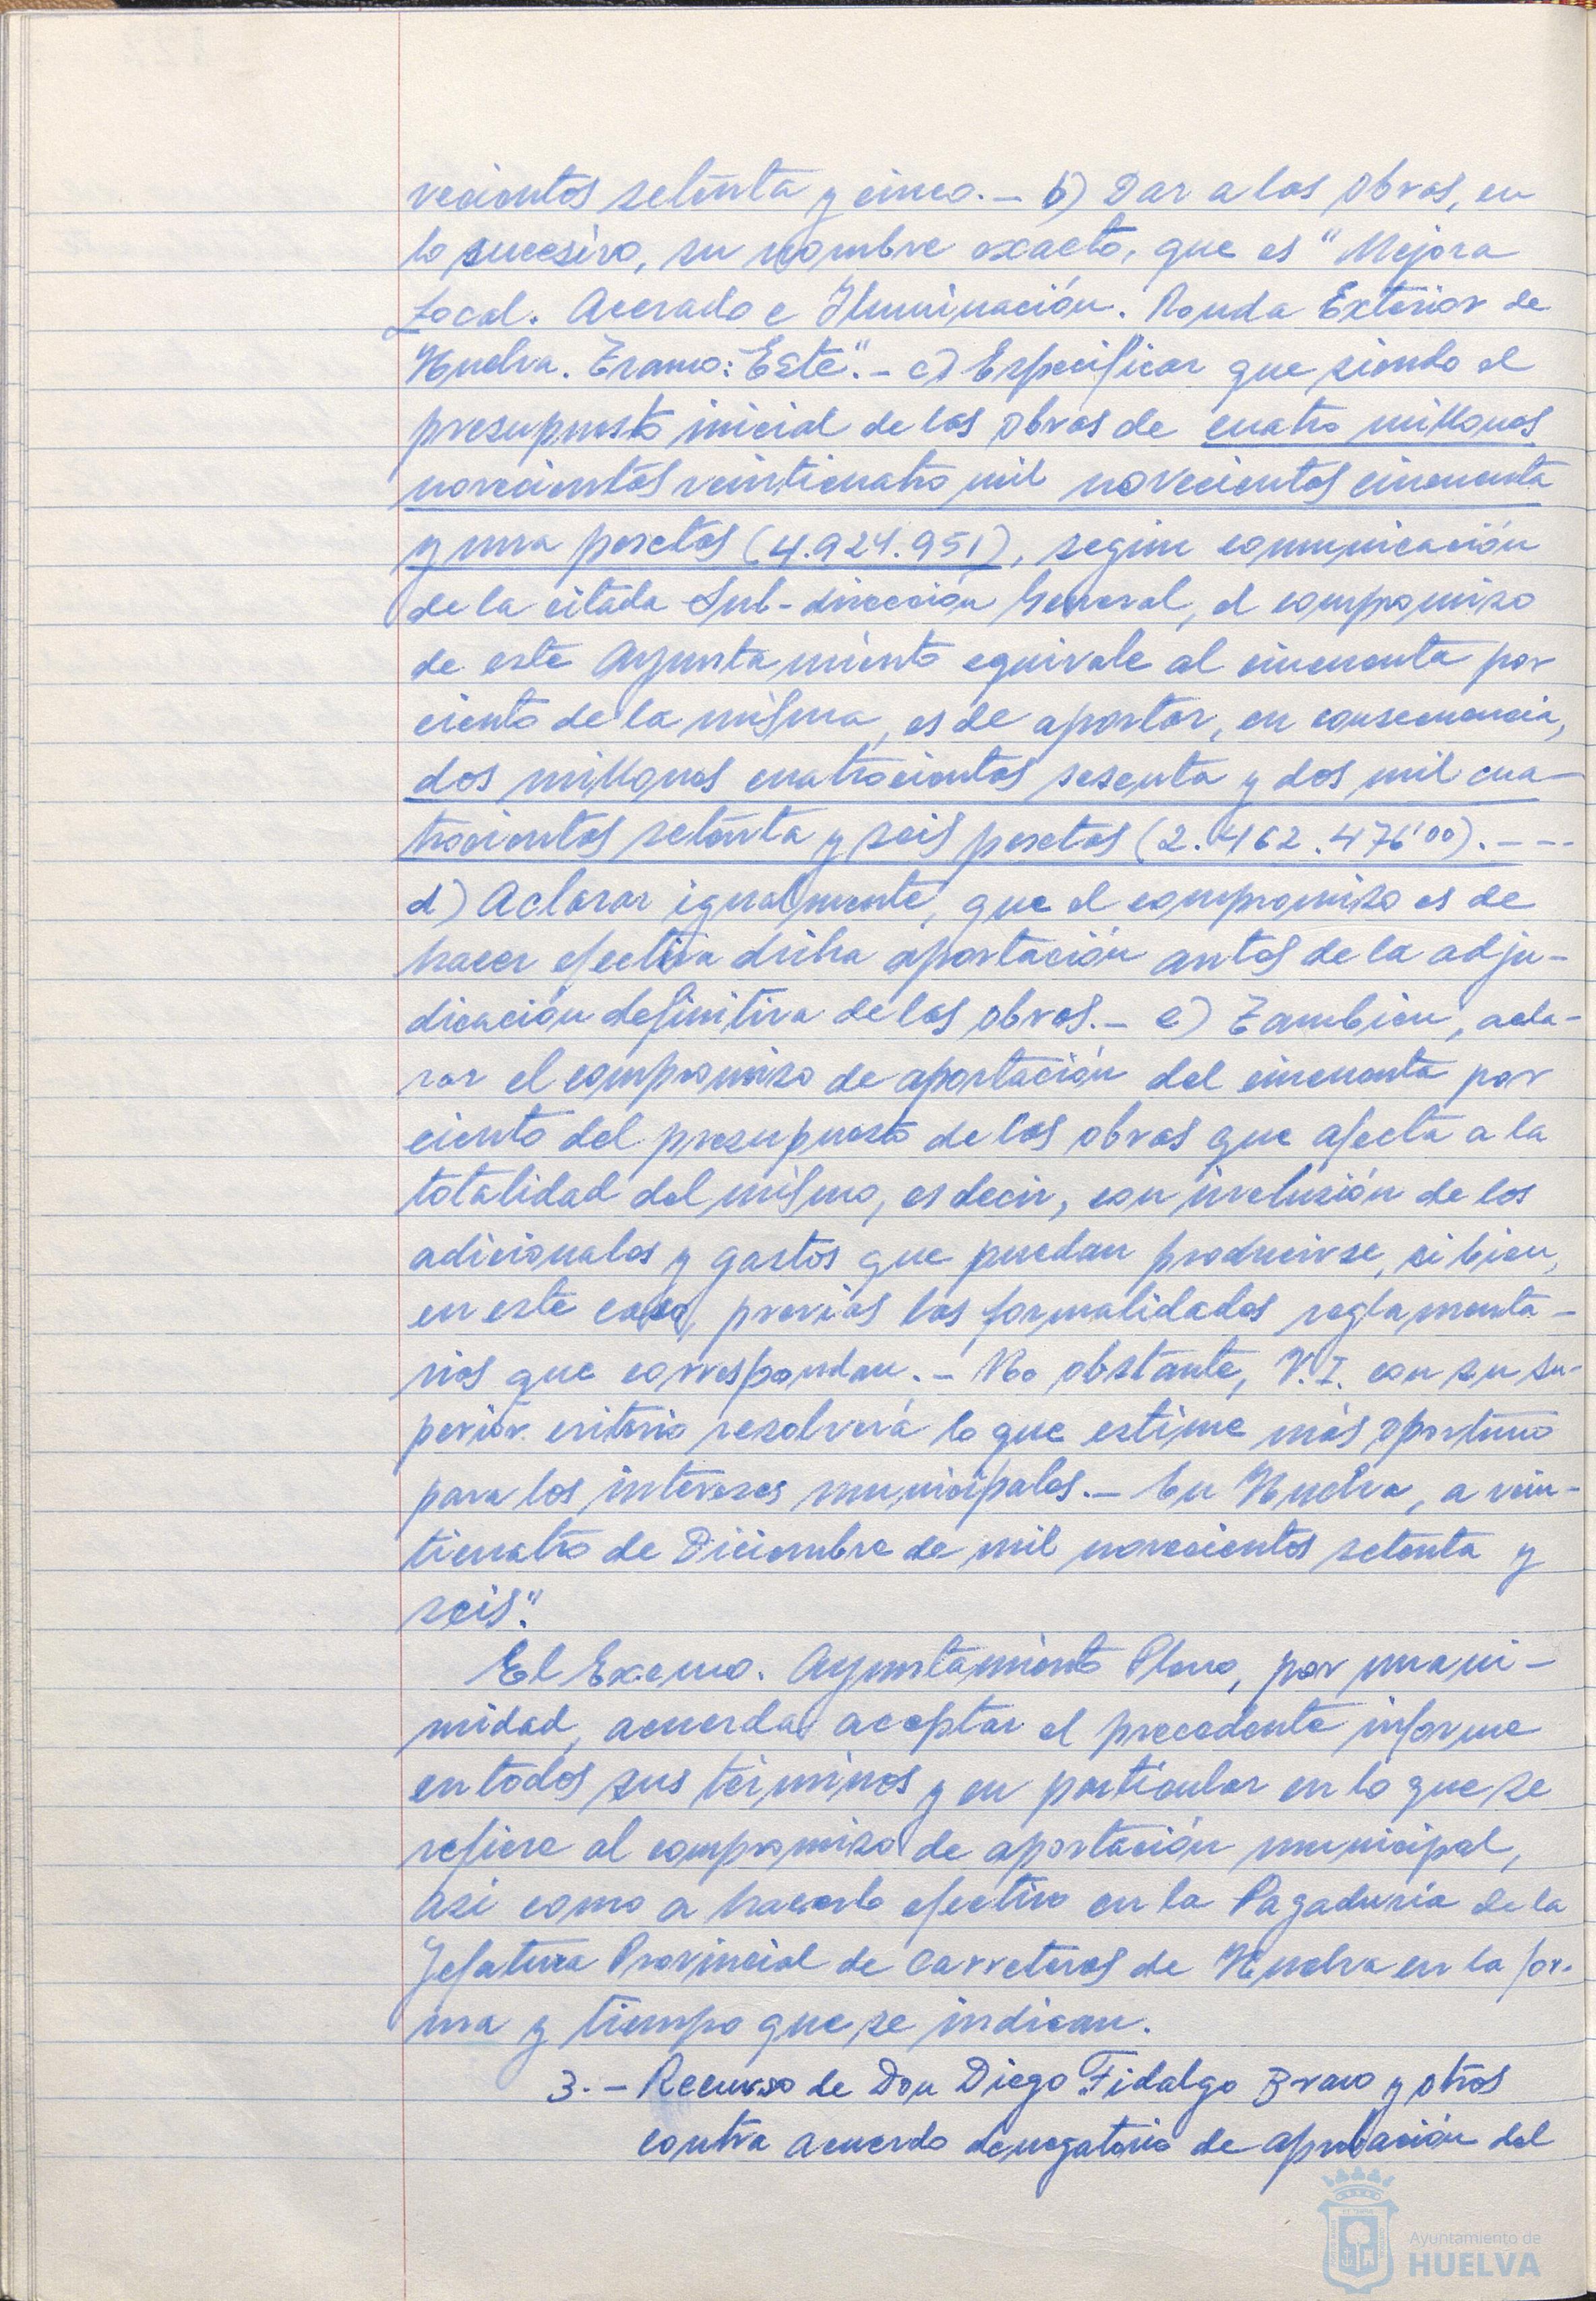 vecientos setenta y cinco.- b) Dar a las obras, en
lo sucesivo, su nombre exacto, que es "Mejora
Local. Acerado e Iluminación. Ronda Exterior de
Huelva. Tramo: Este".- c) Especificar que siendo el
presupuesto inicial de las obras de cuatro millones
novecientos veinticuatro mil novecientos cincuenta
y una pesetas (4.924.951), según comunicación
de la citada Sub-dirección General, el compromiso
de este Ayuntamiento equivale al cincuenta por
ciento de la misma, es de aportar, en consecuencia,
dos millones cuatrocientas sesenta y dos mil cua-
trocientas setenta y seis pesetas (2.462.476'00).---
d) Aclarar igualmente, que el compromiso es de
hacer efectiva dicha aportación antes de la adju-
dicación definitiva de las obras.- e) Tambien, acla-
rar el compromiso de aportación del cincuenta por
ciento del presupuesto de las obras que afecta a la
totalidad del mismo, es decir, con inclusión de los
adicionales y gastos que puedan producirse, si bien,
en este caso, previas las formalidades reglamenta-
rias que correspondan.- No obstante, V.I. con su su-
perior criterio resolverá lo que estime más oportuno
para los intereses municipales.- En Huelva, a vein-
ticuatro de Diciembre de mil novecientos setenta y
seis".
El Excmo. Ayuntamiento Pleno, por unani-
midad, acuerda aceptar el precedente informe
en todos sus términos y en particular en lo que se
refiere al compromiso de aportación municipal,
asi como a hacerlo efectivo en la Pagaduria de la
Jefatura Provincial de Carreteras de Huelva en la for-
ma y tiempo que se indican.
3.- Recurso de Don Diego Fidalgo Bravo y otros
contra acuerdo denegatorio de aprobación del
Ayuntamiento de
HUELVA